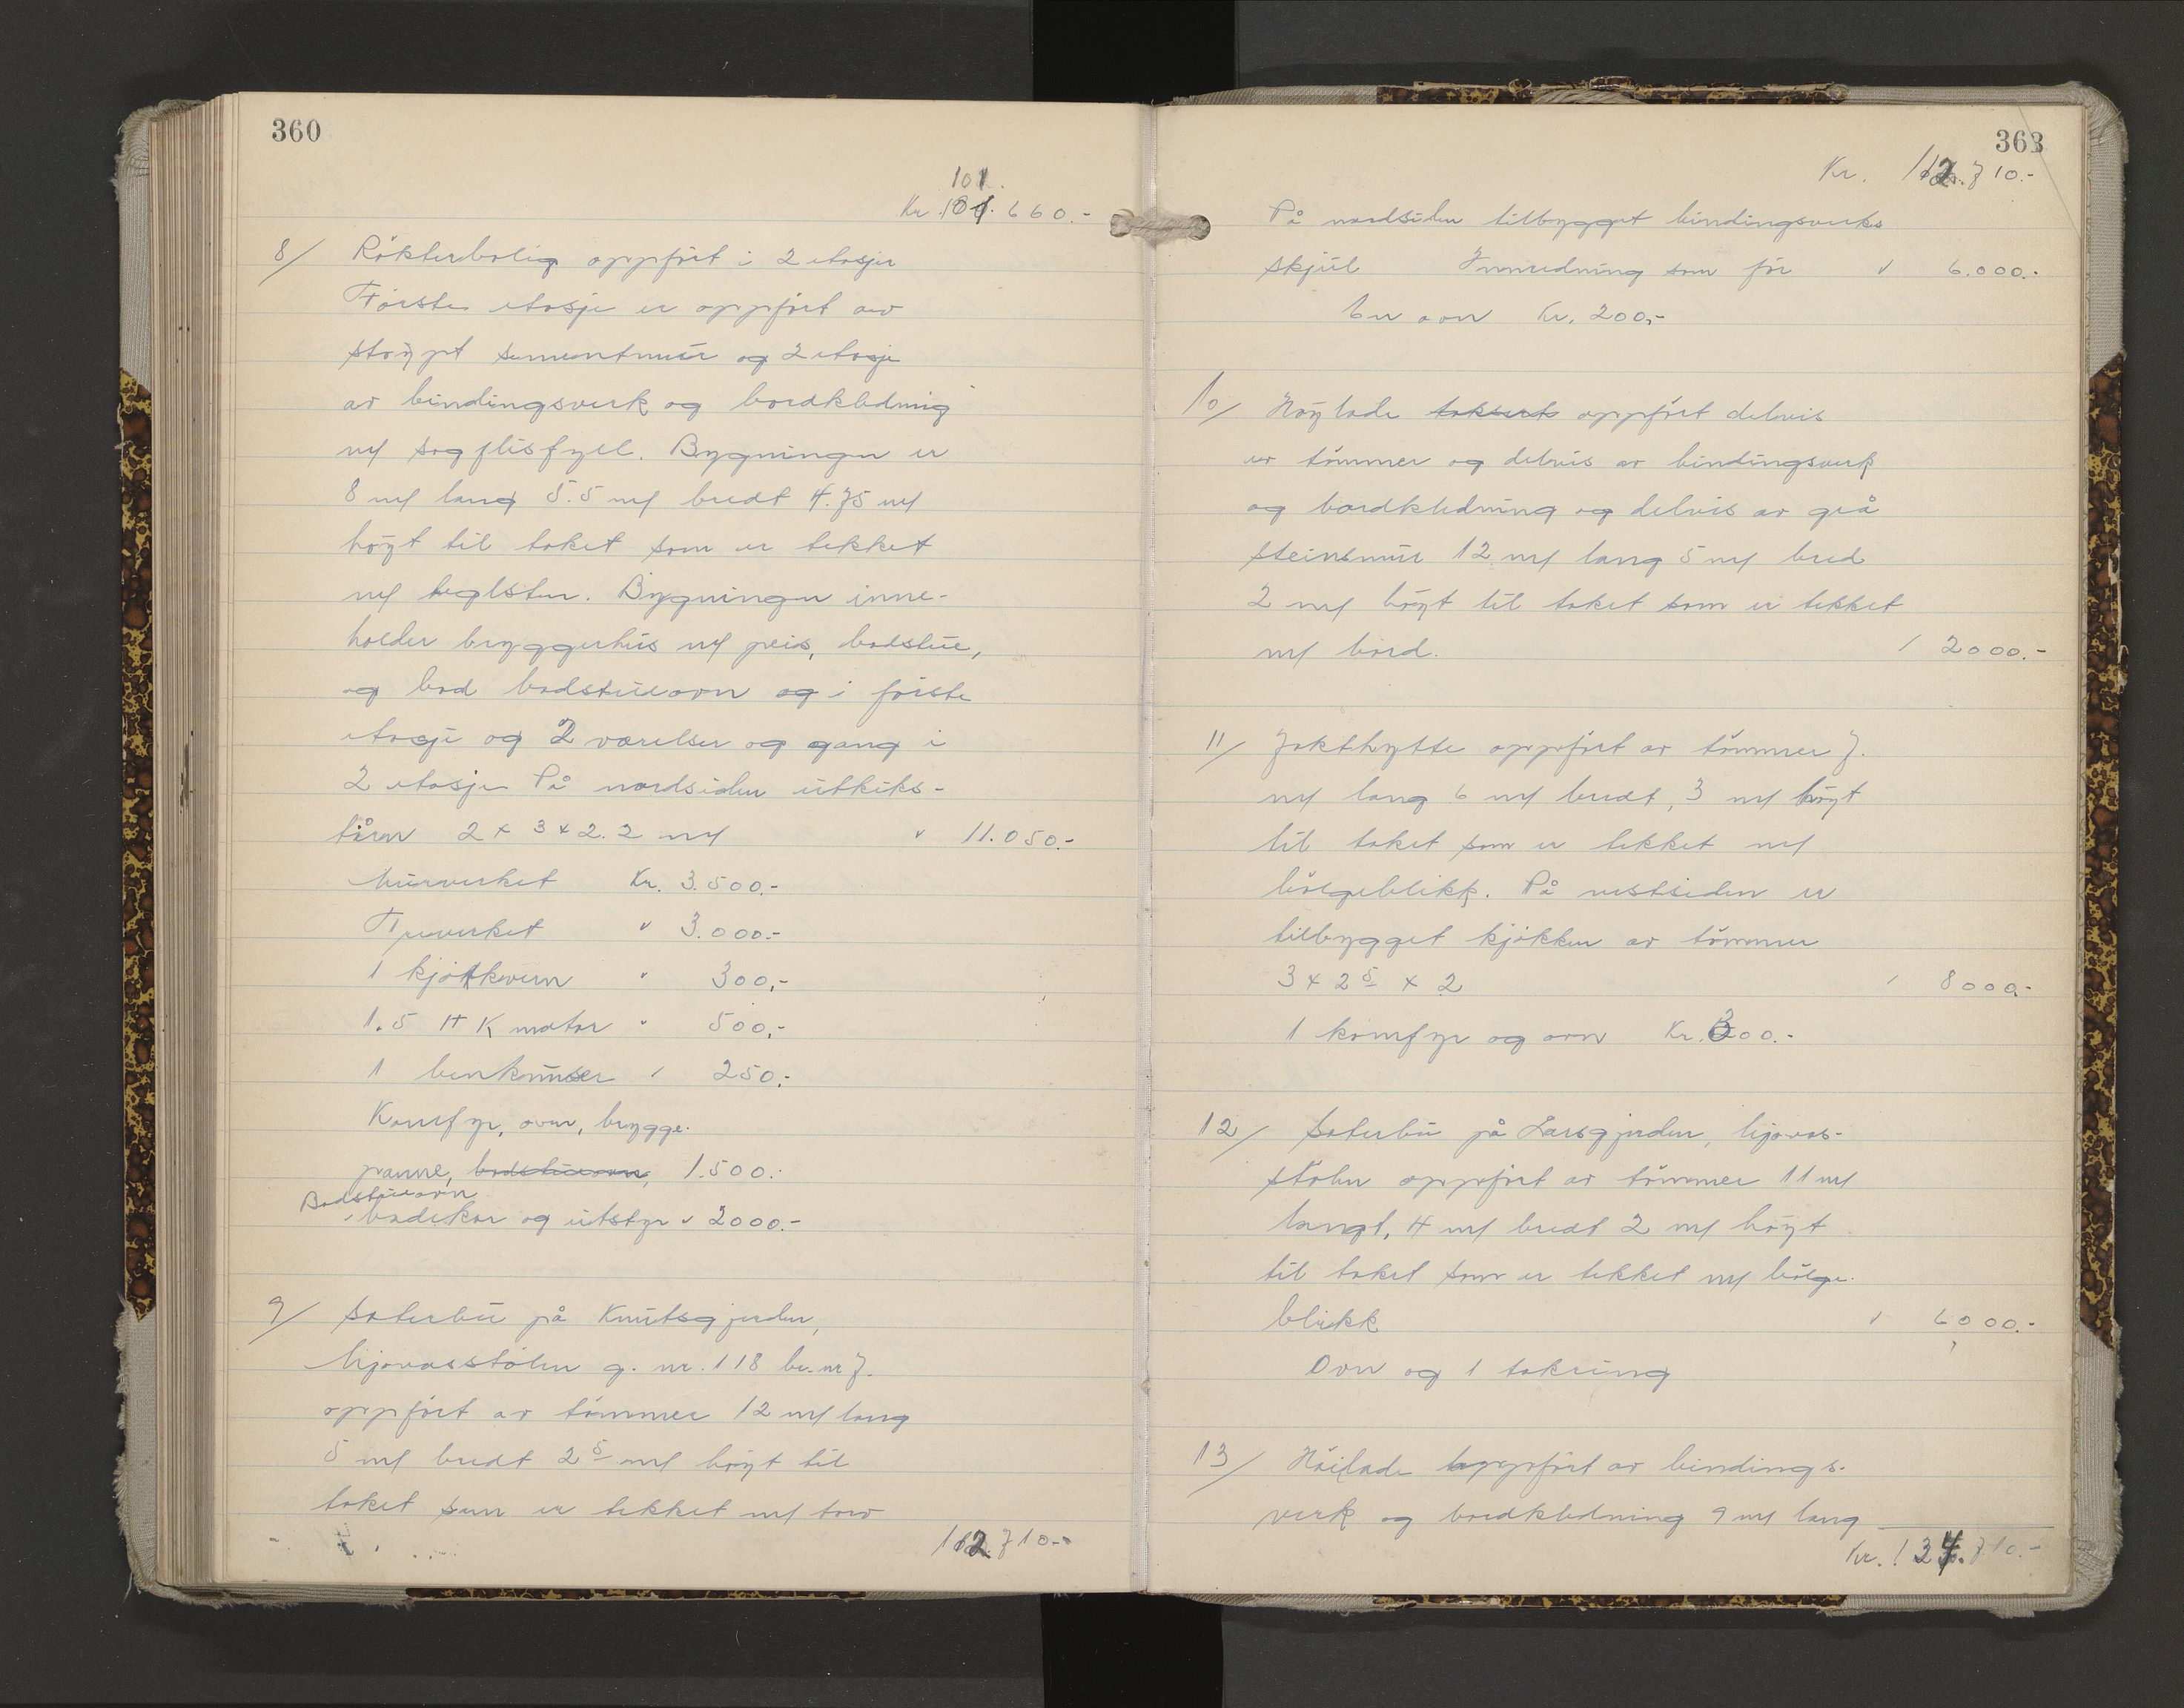 360
101.
Kr. 101.660.-
8/ Rökterbolig oppfört i 2 etasjer
Förste etasje er oppført av
støypt sementmur og 2 etasje
av bindingsverk og bordkledning
m/ sagflisfyll. Bygningen er
8 m/ lang 5.5 m/ bredt 4.75 m/
høyt til taket som er tekket
m/ teglsten. Bygningen inne-
holder bryggerhus m/ peis, badstue,
og bad badstueovn og i første
etasje og 2 værelser og gang i
2 etasje På nordsiden utkiks-
tårn 2 x 3 x 2.2 m/ " 11.050.-
Murverket Kr. 3.500.-
Treverket " 3.000.-
1 kjøttkvern " 300,-
1.5 H K motor " 500,-
1 benknuser " 250,-
Komfyr, ovn, brygge-
panne, badstueovn, 1.500.-
Badstueovn
badekar og utstyr " 2000.-
9/ Sæterbu på Knutsgjerden,
Mjovasstølen g. nr. 118 br. nr 7.
oppført av tømmer 12 m/ lang
5 m/ bredt 2 5 m/ høyt til
taket som er tekket m/ torv
112.710.-
363
Kr. 112.710.-
På nordsiden tilbygget bindingsverks
skjul Innredning som før " 6.000.-
En ovn Kr. 200,-
10/ Høylade taksert oppført delvis
av tømmer og delvis av bindingsverk
og bordkledning og delvis av grå
steinsmur 12 m/ lang 5 m/ bred
2 m/ høyt til taket som er tekket
m/ bord. " 2000.-
11/ Jakthytte oppført av tømmer 7.
m/ lang 6 m/ bredt, 3 m/ høyt
til taket som er tekket m/
bølgeblikk. På vestsiden er
tilbygget kjøkken av tømmer
3 x 2 5 x 2 " 8000.-
1 komfyr og ovn Kr. 300.-
12/ Sæterbu på Larsgjerden, Mjovas-
stølen oppført av tømmer 11 m/
langt, 4 m/ bredt 2 m/ høyt
til taket som er tekket m/ bølge-
blikk " 6000.-
Ovn og 1 takring
13/ Høilade oppført av bindings-
verk og bordkledning 9 m/ lang
Kr. 134.710.-